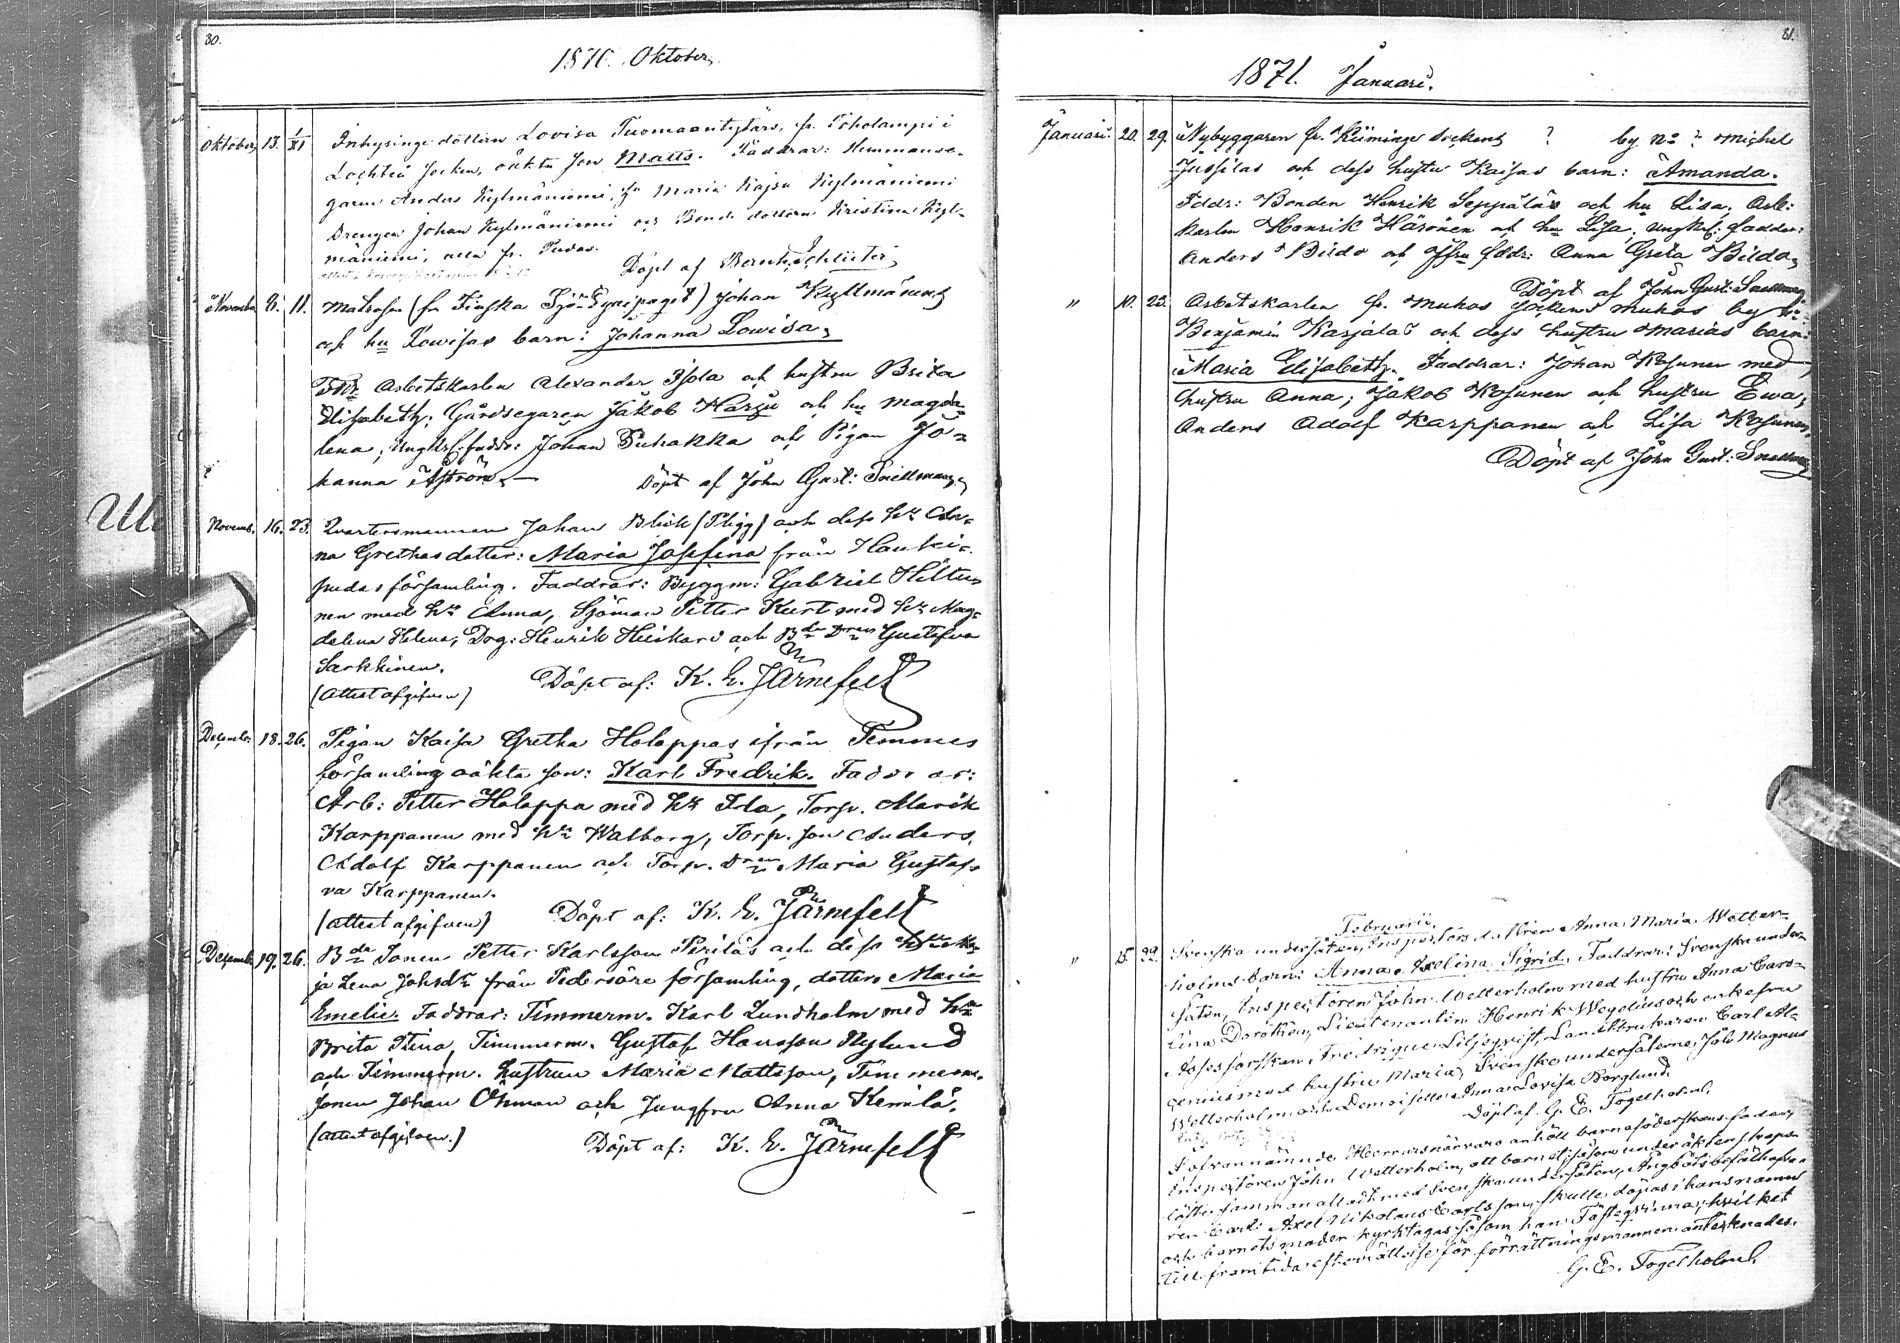 80.
1870. Oktober
Oktober 13. 1/XI Inhysinge dottern Lovisa Tuomaantytärs, fr. Toholampi i
Lochteå Socken, oäkta son Matts. Faddrar: Hemmanse-
garen Anders Kylmäniemi, hu Maria Kajsa Kylmäniemi
Drengen Johan Kylmäniemi och Bonde dottern Kristina Kyl-
mäniemi, alla fr. Pudas.
Döpt af Bernh. Schlüter
November 6. 11. Matrosen (fr Finska Sjö Equipaget) Johan
och hu Lowisas barn: Johanna Lowisa,
Fddr Arbetskarlen Alexander Isola och hustru Brita
Elisabeth; Gårdsegaren Jakob Harju och hu Magda-
lena; Ungkf. faddr: Johan Puhakka och Pigan Jo-
hanna Åström. Döpt af John Gust: Snellman
Novemb. 16. 23. Qvartersmannen Johan Blick (Pligg) och dess hu An-
na Grethas dotter: Maria Josefina från Hauki-
pudas församling. Faddrar: Byggm: Gabriel Hiltu-
nen med hu Anna, Sjöman Petter Kurt med hu Mag-
dalena Helena, Drg: Henrik Heiskari och Bde Dren Gustafva
Sarkkinen.
(attest afgifven) Döpt af: K. E. Järnefelt
December 18. 26. Pigan Kaisa Gretha Holappas ifrån Temmes
församling oäkta son: Karl Fredrik. Faddrar:
Arb: Petter Holappa med hu Ida, Torp. Marik
Karppanen med hu Walborg, Torp. son Anders
Adolf Karppanen och Torp. Dren Maria Gustaf-
va Karppanen.
(attest afgifven) Döpt af: K. E. Järnefelt
Decemb. 19. 26. Bde Sonen Petter Karlsson Pirilä's och dess hu Ka-
ja Lena Johsdr från Pedersöre församling, dotter: Maria
Emelie. Faddrar: Timmerm. Karl Lundholm med hu
Brita Stina, Timmerm. Gustaf Hansson Nylund
och Timmerm. hustrun Maria Mattsson, Timmerm.
sonen Johan Öhman och Jungfru Anna Kemilä.
(attest afgifven.) Döpt af: K. E. Järnefelt
81.
1871. Januari.
Januari. 20. 29. Nybyggaren fr. Kiiminge Sockens ? by No ? Michel
Jussilas och dess hustru Kaisas barn: Amanda.
Fddr: Bonden Henrik Seppälä och hu Lisa, Arb:
karlen Henrik Härönen och hu Lisa; Ungkf: faddr:
Anders Bildo och Jfru fddr: Anna Greta Bildo,
Döpt af John Gust: Snellman
" 10. 22. Arbetskarlen fr. Muhos Sockens Muhos by No -
Benjamin Karjalas och dess hustru Marias barn:
Maria Elisabeth. Faddrar: Johan Kosunen med
hustru Anna; Jakob Kosunen och hustru Ewa;
Anders Adolf Karppanen och Lisa Kosunen,
Döpt af John Gust: Snellman
Februari.
" 15. 22. Svenska undersåten, Inspektors dottren Anna Maria Wetter-
holms barn: Anna Axelina Sigrid. Faddrar: Svenska under-
såten, Inspectoren John Wetterholm med hustru Anna Caro-
lina Dorothea, Lieutenanten Henrik Wegelius och enkefru
Assessorskan Fredrique Liljeqvist, Landtbrukaren Carl Al-
cenius med hustru Maria, Svenska undersåterne, Job Magnus
Wetterholm och Demoiselle Anna Lovisa Borglund.
Döpt af G. E. Fogelholm.
I ofvannämnde Herrars närvaro anhöll barnaföderskans fader,
Inspectoren John Wetterholm, att barnet, såsom under äktenskaps-
löfte sammanafladt med Svenska undersåten, Ångbåtsbefälhafva-
ren Carl Axel Nikolaus Carlsson, skulle döpas i hans namn
och barnets moder kyrktagas såsom hans Fästeqvinna; hvilket
till framtida efterrättelse för förrättningsmannen antecknades.
G. E. Fogelholm.